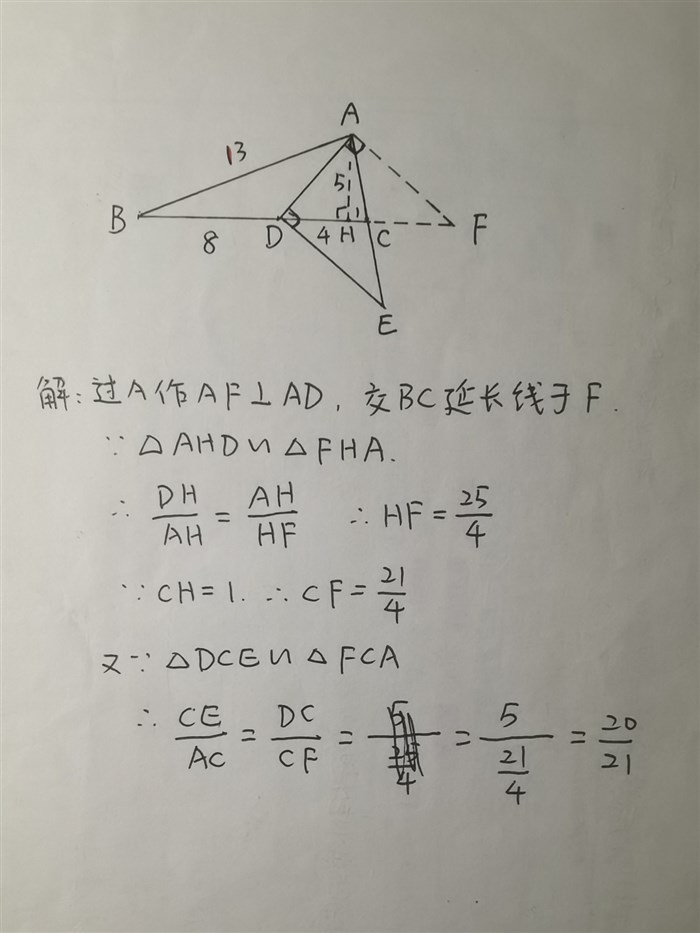 A
13
5
1
B
D
4
H
C
F
8
E
解:过A作AF⊥AD,交BC延长线于F.
∵△AHD∽△FHA.
∴ DH/AH = AH/HF ∴HF = 25/4
∵CH=1. ∴CF = 21/4
又∵△DCE∽△FCA
∴ CE/AC = DC/CF = = 5/(21/4) = 20/21